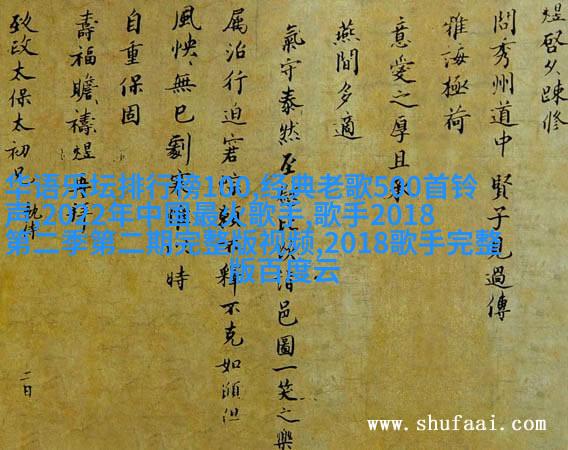 煜啓久踈修
問秀州道中 賢子見過傳
雅誨極荷
意愛之厚且
燕閒多適
氣守泰然至 邑圖一笑之樂
属治行迫 釋不克如願但
風怏怏無已劇寒 時
自重保固
壽福瞻禱煜
致政太保太初兄
二日
华语乐坛排行榜100,经典老歌500首铃
声,2022年中国最火歌手,歌手2018
第二季第二期完整版视频,2018歌手完整
版百度云
www.shufaai.com